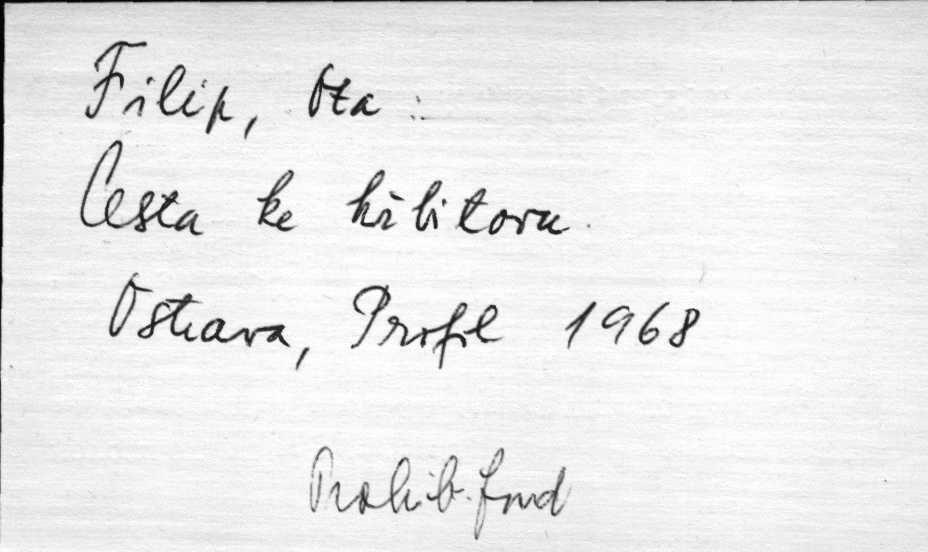 Filip, Ota:
Cesta ke hřbitovu.
Ostrava, Profil 1968
Prohib. fond